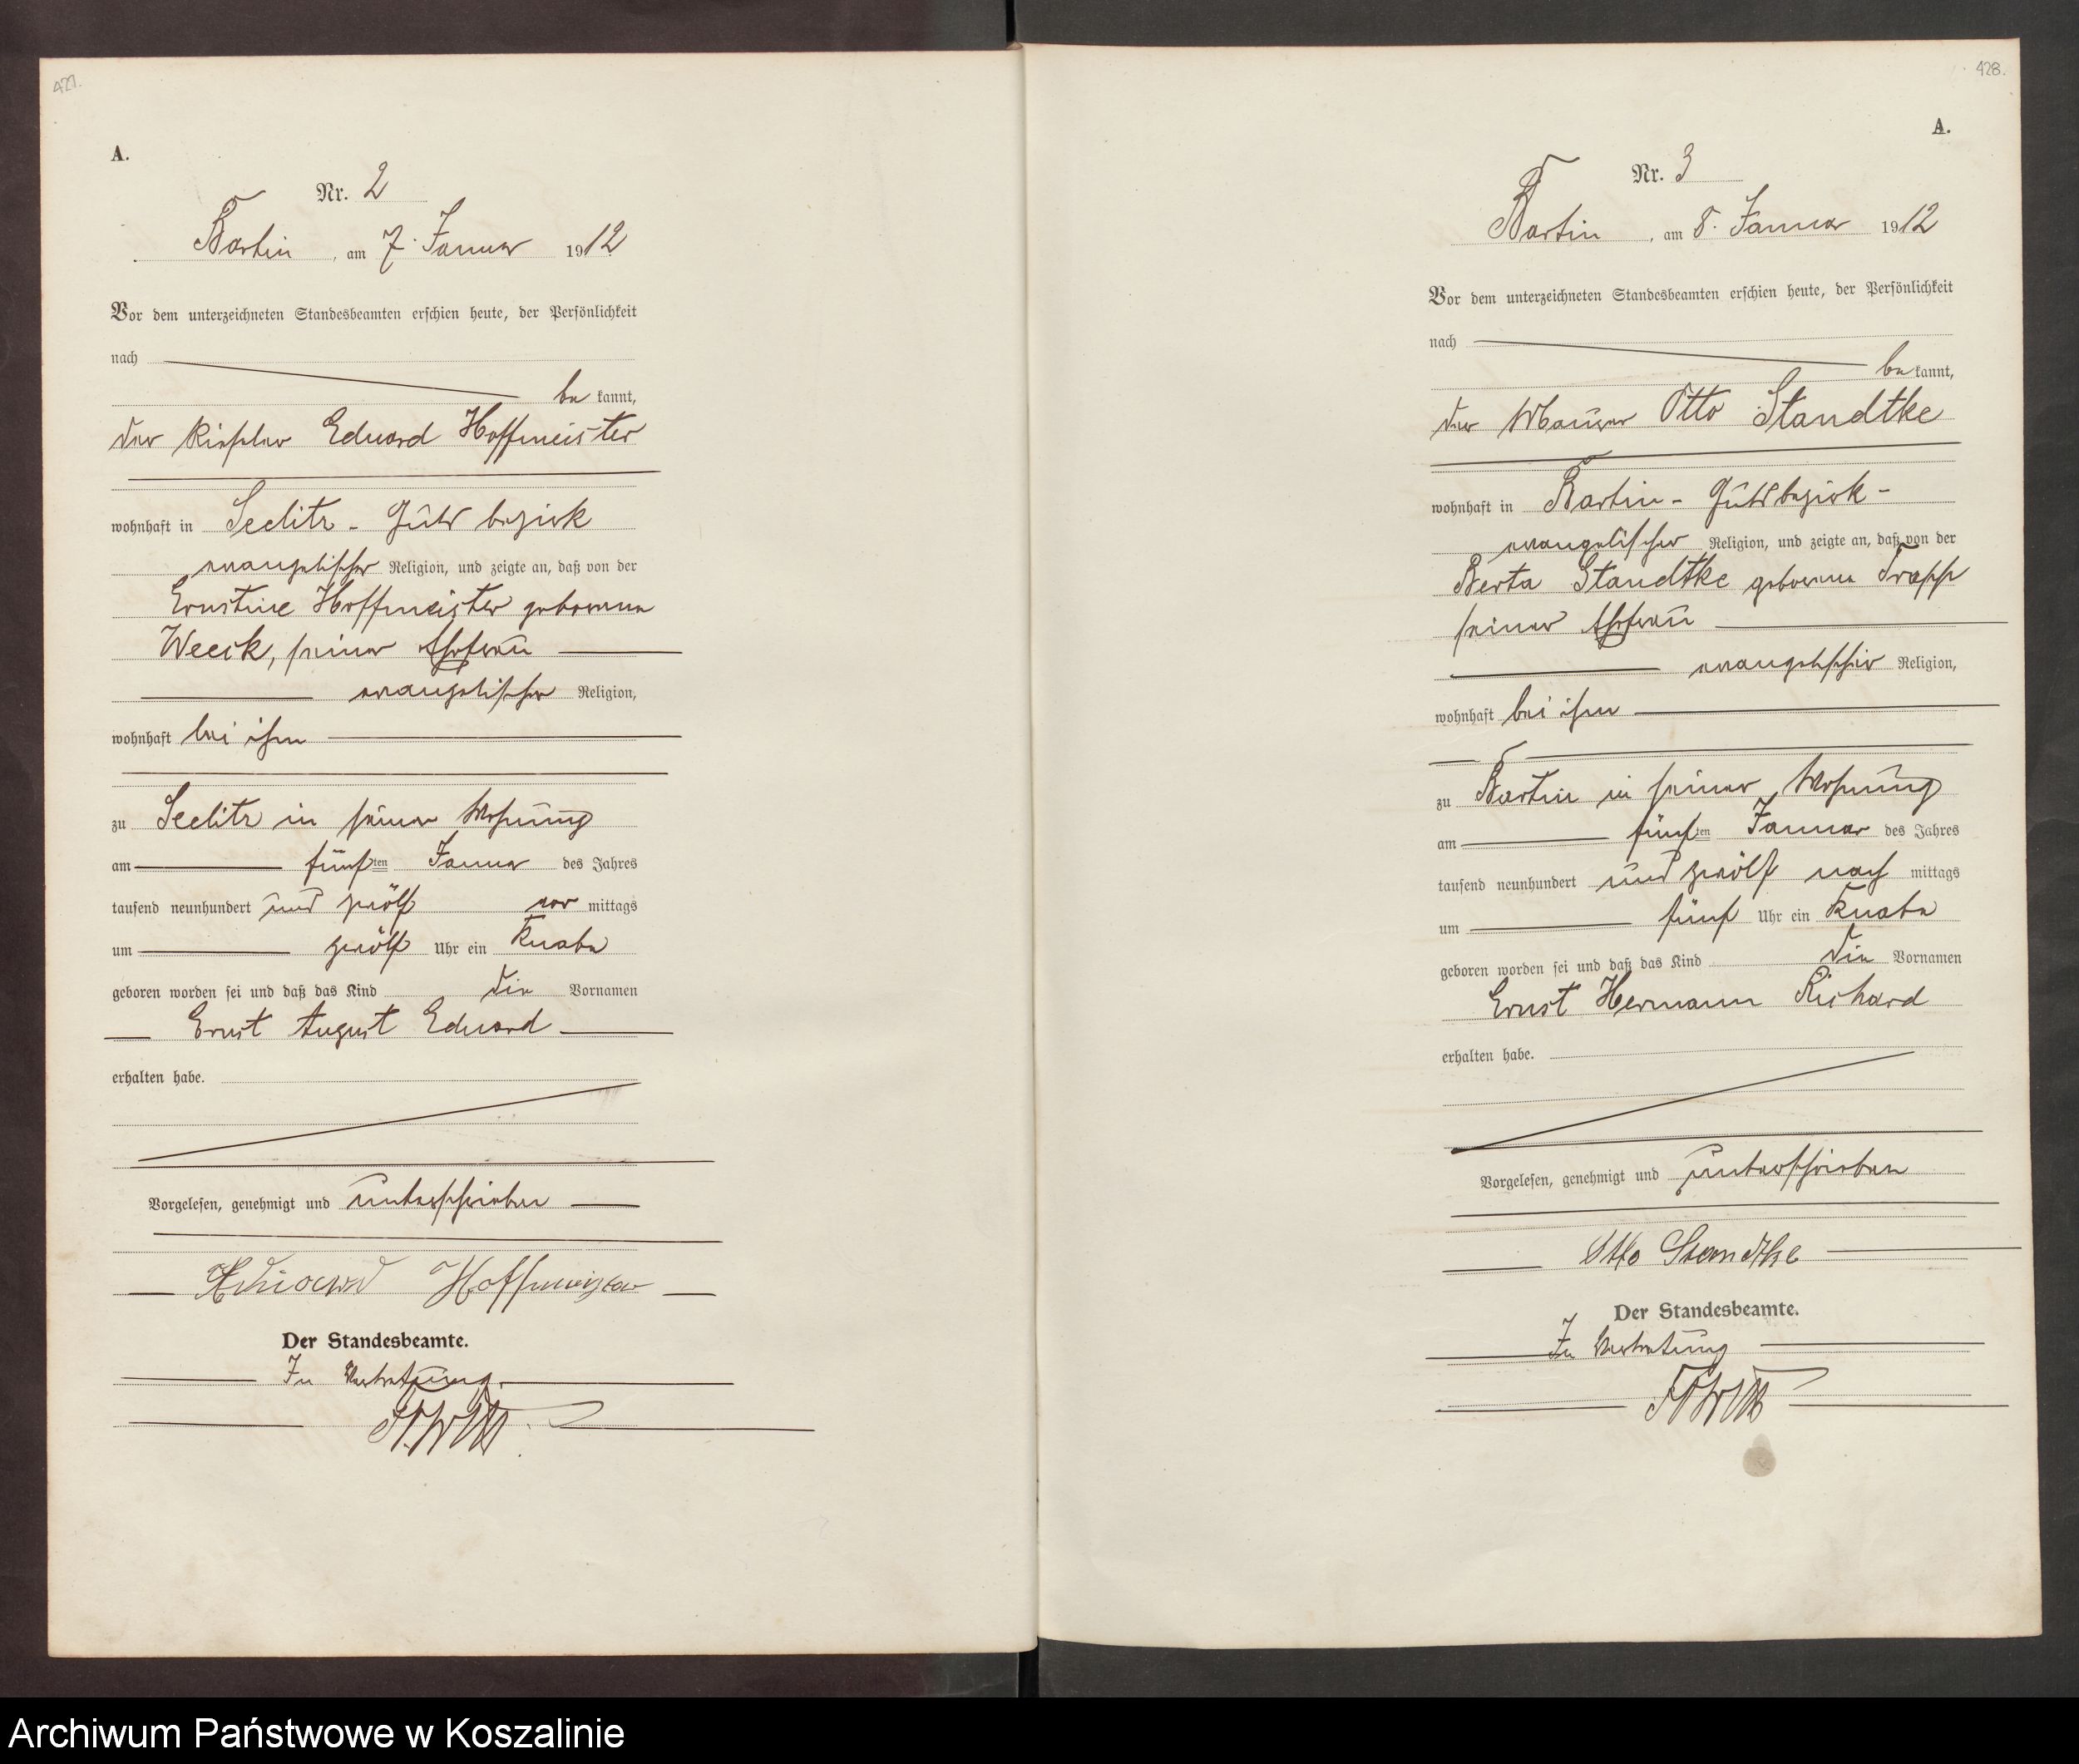 427.
A.
Nr. 2
Bartin, am 7. Januar 1912
Vor dem unterzeichneten Standesbeamten erschien heute, der Persönlichkeit
nach
bekannt,
der Eduard Hoffmeister
wohnhaft in Seelitz - Gutsbezirk
evangelischer Religion, und zeigte an, daß von der
Ernstine Hoffmeister geborenen
Weeck, seiner Ehefrau
evangelischer Religion,
wohnhaft bei ihm
zu Seelitz in seiner Wohnung
am fünften Januar des Jahres
tausend neunhundert und zwölf vormittags
um zwölf Uhr ein Knabe
geboren worden sei und daß das Kind die Vornamen
Ernst August Eduard
erhalten habe.
Vorgelesen, genehmigt und unterschrieben
Eduard Hoffmeister
Der Standesbeamte.
In Vertretung.
428.
A.
Nr. 3
Bartin, am 8. Januar 1912
Vor dem unterzeichneten Standesbeamten erschien heute, der Persönlichkeit
nach
bekannt,
der Maurer Otto Standtke
wohnhaft in Bartin - Gutsbezirk -
evangelischer Religion, und zeigte an, daß von der
Berta Standtke geborene Trapp
seiner Ehefrau
evangelischer Religion,
wohnhaft bei ihm
zu Bartin in seiner Wohnung
am fünften Januar des Jahres
tausend neunhundert und zwölf nachmittags
um fünf Uhr ein Knabe
geboren worden sei und daß das Kind die Vornamen
Ernst Hermann Richard
erhalten habe.
Vorgelesen, genehmigt und unterschrieben
Otto Standtke
Der Standesbeamte.
In Vertretung
Archiwum Państwowe w Koszalinie